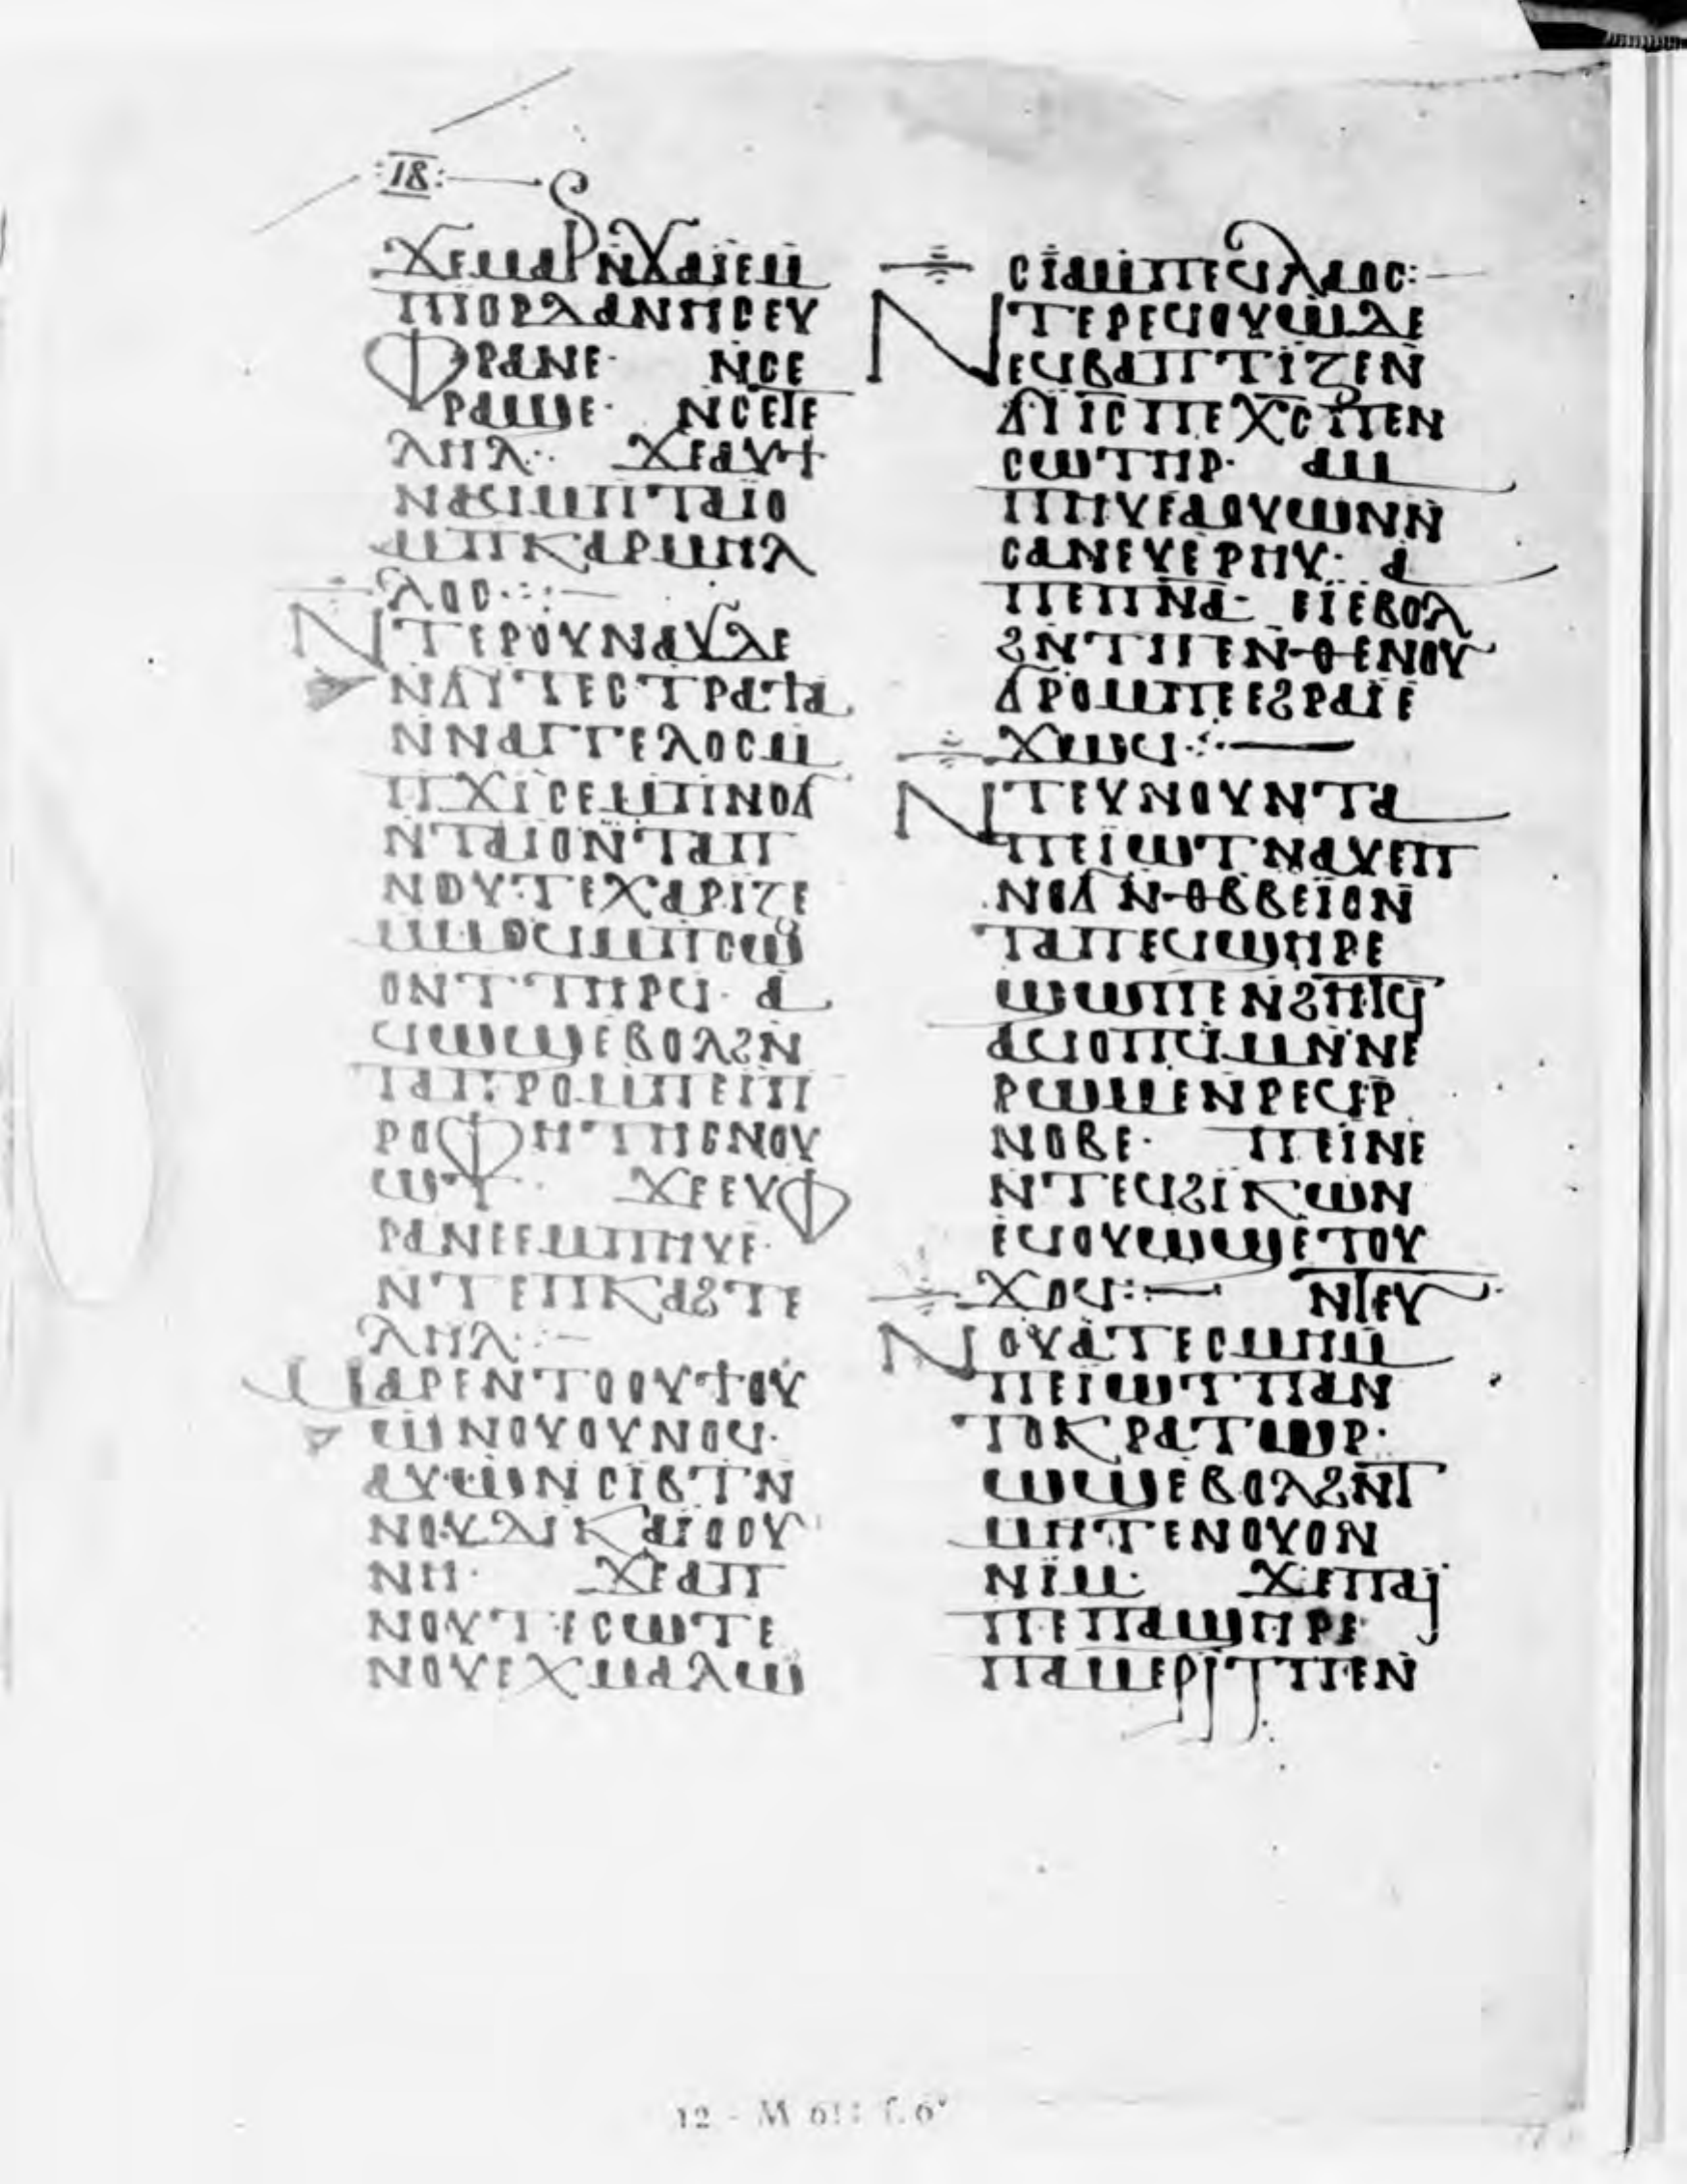 :ⲓⲃ:
ϫⲉⲙⲁⲣⲛ̄ϫⲁⲓ̈ⲉⲙ
ⲡⲓⲟⲣⲇⲁⲛⲏⲥⲉⲩ
ⲫⲣⲁⲛⲉ· ⲛ̄ⲥⲉ
ⲣⲁϣⲉ· ⲛⲥⲉⲧⲉ
ⲗⲏⲗ·· ϫⲉⲁⲩϯ
ⲛⲁϥⲙ̄ⲡⲧⲁⲓⲟ
ⲙ̄ⲡⲕⲁⲣⲙⲏⲗ
ⲗⲟⲥ·::—
ⲛⲧⲉⲣⲟⲩⲛⲁⲩⲇⲉ
ⲛϭⲓⲛⲉⲥⲧⲣⲁϯⲁ
ⲛⲛⲁⲅⲅⲉⲗⲟⲥⲙ
ⲡϫⲓⲥⲉⲉⲡⲓⲛⲟϭ
ⲛ̄ⲧⲁⲓⲟⲛ̄ⲧⲁⲡ
ⲛⲟⲩⲧⲉⲭⲁⲣⲓⲍⲉ
ⲙⲙⲟϥⲙ̄ⲡⲥⲱ
ⲟⲛⲧⲧⲏⲣϥ· ⲁ
ϥⲱϣⲉⲃⲟⲗϩⲛ
ⲧⲁⲡⲣⲟⲙⲡⲉⲡ
ⲣⲟⲫⲏⲧⲏⲥⲛⲟⲩ
ⲱⲧ·· ϫⲉⲉⲩⲫ
ⲣⲁⲛⲉⲉⲙⲡⲏⲩⲉ·
ⲛⲧⲉⲡⲕⲁϩⲧⲉ
ⲗⲏⲗ::—
ⲙⲁⲣⲉⲛⲧⲟⲟⲩϯⲟⲩ
ⲱⲛⲟⲩⲟⲩⲛⲟϥ·
ⲁⲩⲱⲛⲥⲓⲃⲧⲛ
ⲛⲟⲩⲇⲓⲕⲁⲓⲟⲥⲩ
ⲛⲏ· ϫⲉⲁⲡ
ⲛⲟⲩⲧⲉⲥⲱⲧⲉ
ⲛⲟⲩⲉⲭⲙⲁⲗⲱ
ⲥⲓⲁⲙ̄ⲡⲉϥⲗⲁⲟⲥ:—
ⲛⲧⲉⲣⲉϥⲟⲩⲱⲇⲉ
ⲉϥⲃⲁⲡⲧⲓⲍⲉⲛ̄
ϭⲓⲓ̅ⲥ̅ⲡⲉⲭ̅ⲥ̅ⲡⲉⲛ
ⲥⲱⲧⲏⲣ· ⲁⲙ
ⲡⲏⲩⲉⲁⲟⲩⲱⲛⲛ̄
ⲥⲁⲛⲉⲩⲉⲣⲏⲩ· ⲁ
ⲡⲉⲡⲛ̅ⲁ̅· ⲉⲓⲉⲃⲟⲗ
ϩⲛⲧⲡⲉⲛⲑⲉⲛⲟⲩ
ϭⲣⲟⲙⲡⲉⲉϩⲣⲁⲓ̈ⲉ
ϫⲱϥ·:—
ⲛⲧⲉⲩⲛⲟⲩⲛ̄ⲧⲁ
ⲡⲉⲓⲱⲧⲛⲁⲩⲉⲡ
ⲛⲟϭⲛ̄ⲑⲃⲃⲉⲓ̈ⲟⲛ̄
ⲧⲁⲡⲉϥϣⲏⲣⲉ
ϣⲱⲡⲉⲛϩⲏⲧϥ
ⲁϥⲟⲡϥⲙⲛⲛⲉ
ⲣⲱⲙⲉⲛ̄ⲣⲉϥⲣ̄
ⲛⲟⲃⲉ· ⲡⲉⲓⲛⲉ
ⲛ̄ⲧⲉϥϩⲓⲕⲱⲛ
ⲉϥⲟⲩⲱϣⲉⲧⲟⲩ
ϫⲟϥ::— ⲛⲧⲉⲩ
ⲛⲟⲩⲁⲧⲉⲥⲙⲏⲙ
ⲡⲉⲓⲱⲧⲡⲁⲛ
ⲧⲟⲕⲣⲁⲧⲱⲣ·
ⲱϣⲉⲃⲟⲗϩⲛ̄ⲧ
ⲙⲏⲧⲉⲛⲟⲩⲟⲛ
ⲛⲓⲙ· ϫⲉⲡⲁⲓ
ⲡⲉⲡⲁϣⲏⲣⲉ
ⲡⲁⲙⲉⲣⲓⲧⲡⲉⲛ
12 - M 611: f. 6ᵛ